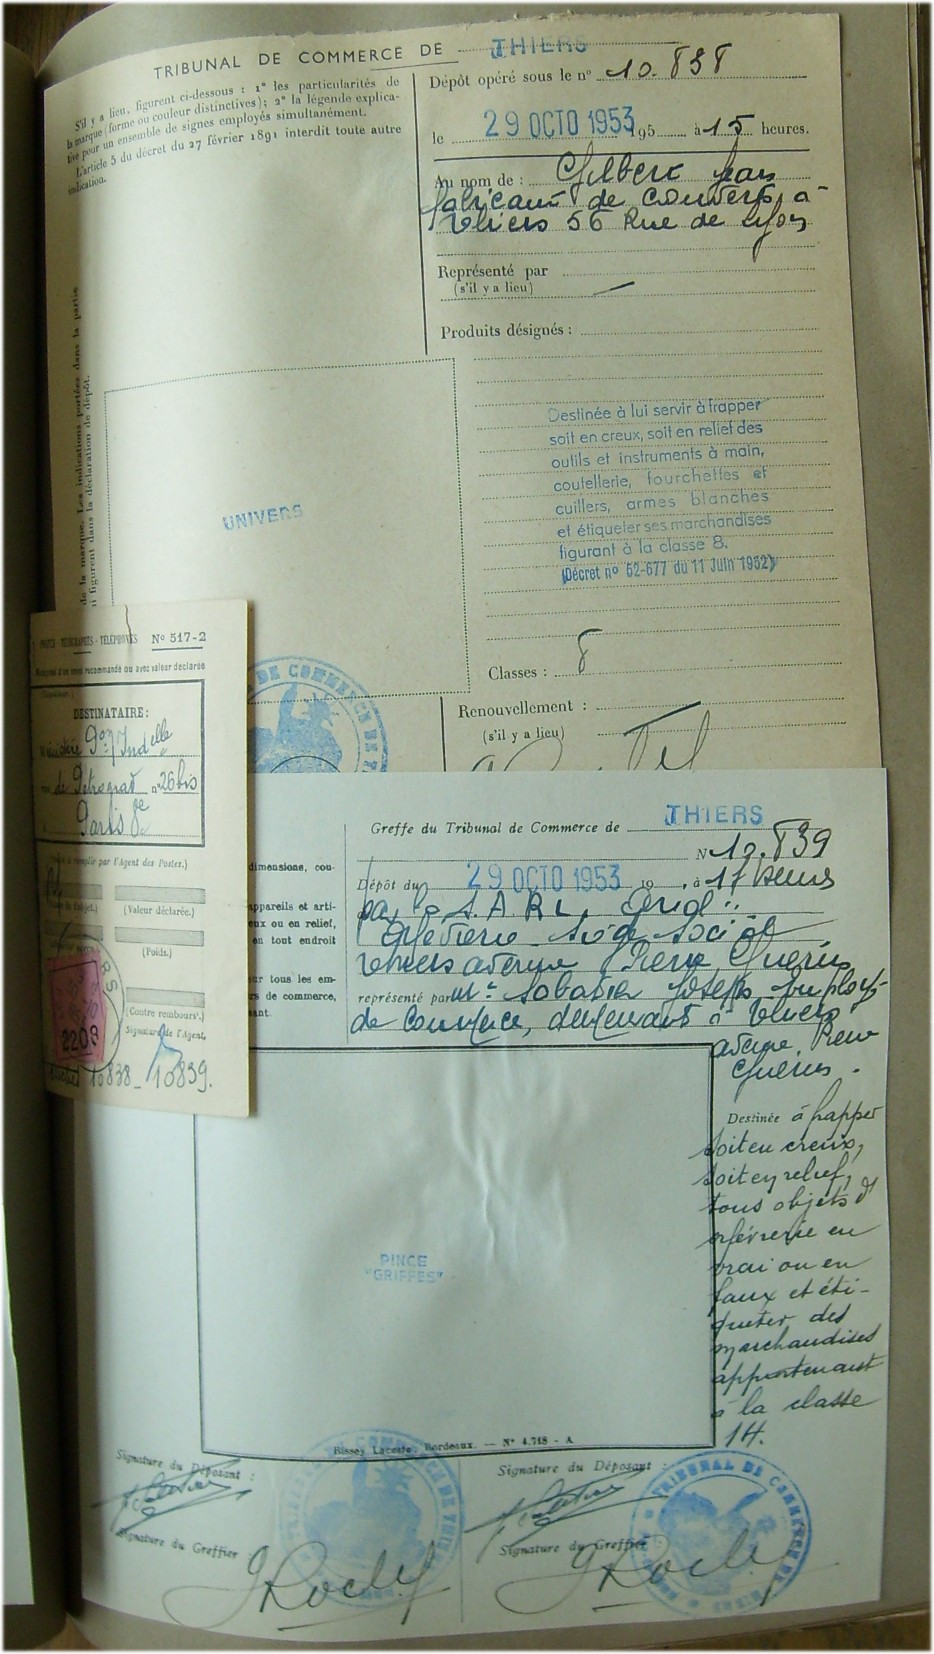 TRIBUNAL DE COMMERCE DE THIERS
S'il y a lieu, figurent ci-dessous : 1° les particularités de
la marque (forme ou couleur distinctives); 2° la légende explica-
tive pour un ensemble de signes employés simultanément.
L'article 5 du décret du 27 février 1891 interdit toute autre
indication.
Dépôt opéré sous le n° 10.838
le 29 OCTO 1953 195 à 15 heures.
Au nom de : Gilbert Jean
fabricant de couverts à
Thiers 56 Rue de Lyon
Représenté par
(s'il y a lieu) —
Produits désignés :
de la marque. Les indications portées dans la partie
figurent dans la déclaration de dépôt.
UNIVERS
Destinée à lui servir à frapper
soit en creux, soit en relief des
outils et instruments à main,
coutellerie, fourchettes et
cuillers, armes blanches
et étiqueter ses marchandises
figurant à la classe 8.
(Décret n° 52-677 du 11 Juin 1952)
Classes : 8
Renouvellement :
(s'il y a lieu)
DE COMMERCE DE
POSTES - TÉLÉGRAPHES - TÉLÉPHONES N° 517-2
d'un envoi recommandé ou avec valeur déclarée
DESTINATAIRE :
Ministère Ind elle
de Pétrograd n° 26 bis
Paris 8e
à remplir par l'Agent des Postes.)
(Valeur déclarée.)
(Poids.)
(Contre rembours'.)
Signature de l'Agent,
2208
10838 - 10839.
Greffe du Tribunal de Commerce de THIERS
N° 10.839
Dépôt du 29 OCTO 1953 19 , à 17 heures
par la S.A.R.L.
Siège Social
Thiers avenue Pierre Guérin
représenté par Mr Sabatier Joseph employé
de commerce, demeurant à Thiers
avenue Pierre
Guérin.
dimensions, cou-
appareils et arti-
eux ou en relief,
en tout endroit
ur tous les em-
rs de commerce,
sant.
Destinée à frapper
soit en creux,
soit en relief,
tous objets d'
orfèvrerie en
vrai ou en
faux et éti-
queter des
marchandises
appartenant
à la classe
14.
PINCE
"GRIFFES"
Bissey Lacoste, Bordeaux. — N° 4.748 - A
Signature du Déposant :
Signature du Déposant :
Signature du Greffier
Signature du Greffier
TRIBUNAL DE COMMERCE DE THIERS